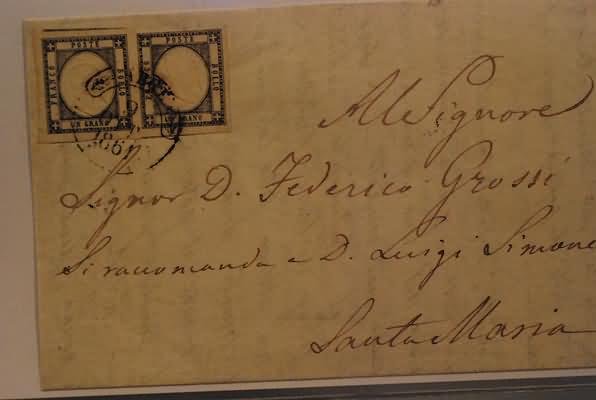 FRANCO POSTE BOLLO UN GRANO
FRANCO POSTE BOLLO UN GRANO
1861
Al Signore
Signor D. Federico Grossi
Si raccomanda a D. Luigi Simone
Santa Maria